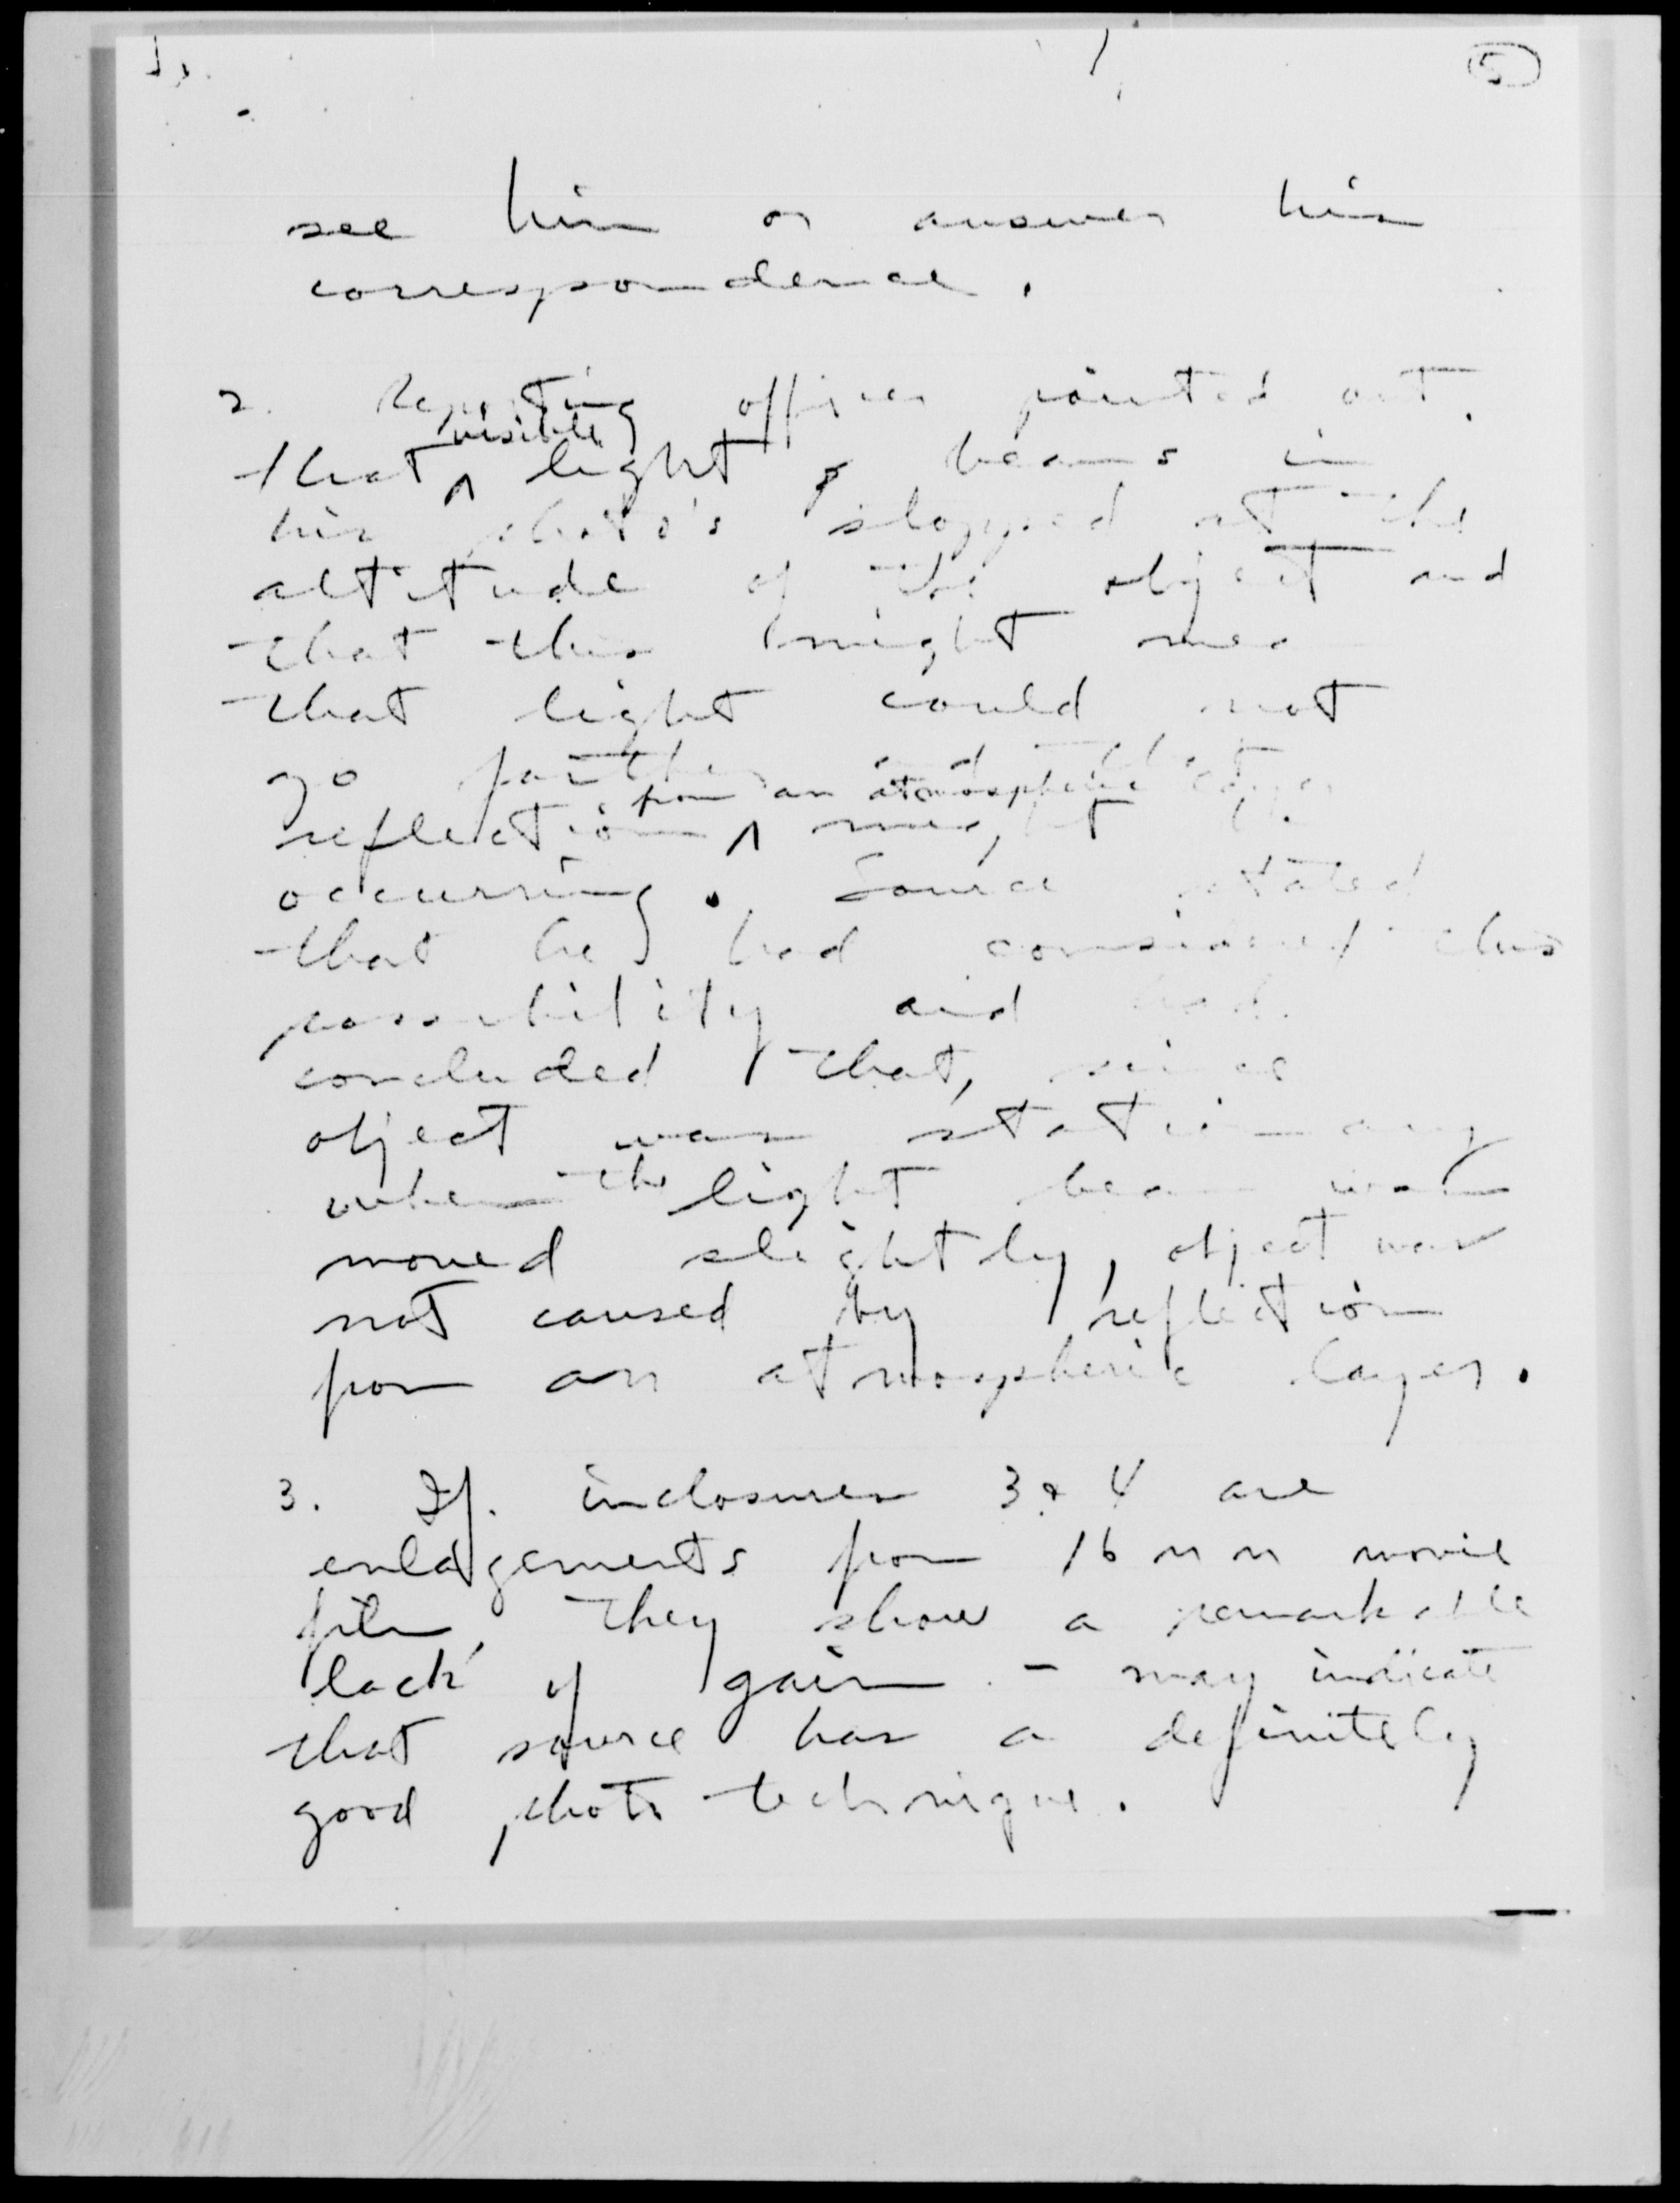 5
see him or answer his
correspondence.
2. Reporting officer pointed out
visible
that ^ light beams in
his photo's stopped at the
altitude of the object and
that this might mean
that light could not
go farther and that
from an atmospheric layer
reflection ^ might be
occurring. Source stated
that he had considered this
possibility and had
concluded that, since
object was stationary
when the light beam was
moved slightly, object was
not caused by reflection
from an atmospheric layer.
3. If inclosures 3 & 4 are
enlargements from 16 mm movie
film, they show a remarkable
lack of gain - may indicate
that source has a definitely
good photo technique.